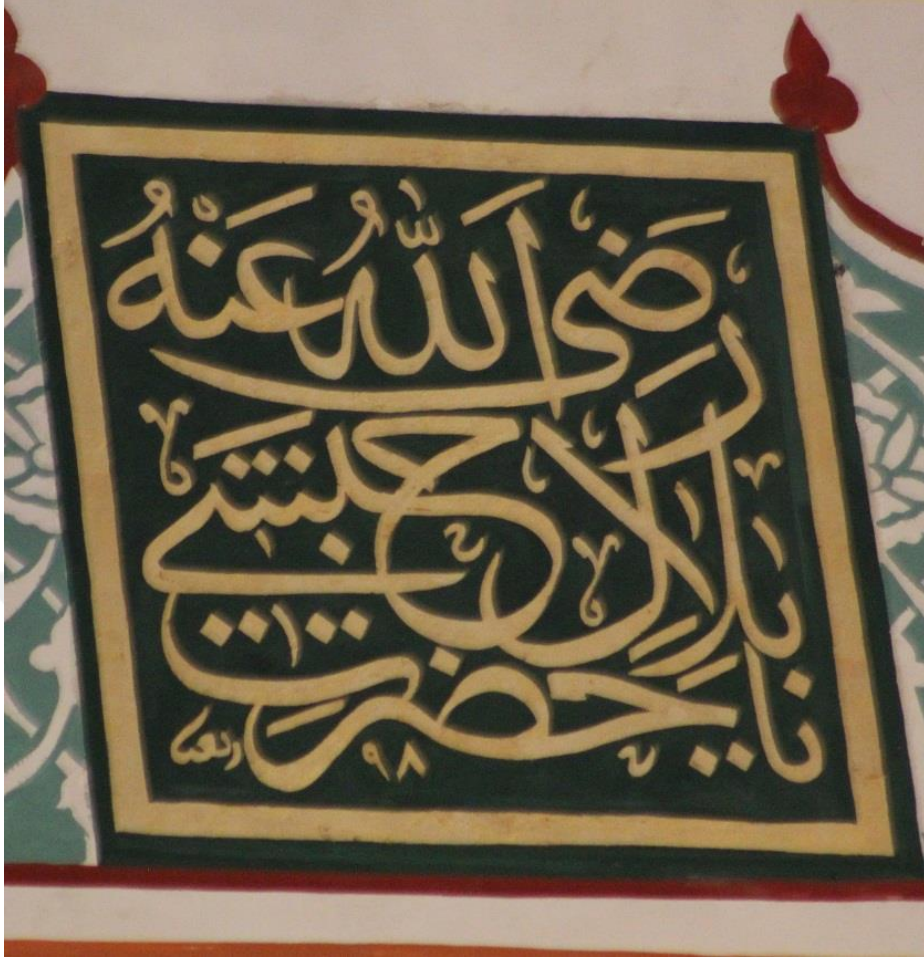 يا حضرتِ
بِلالِ حبشي
رضى اللّٰهُ عَنْهُ
٩٨